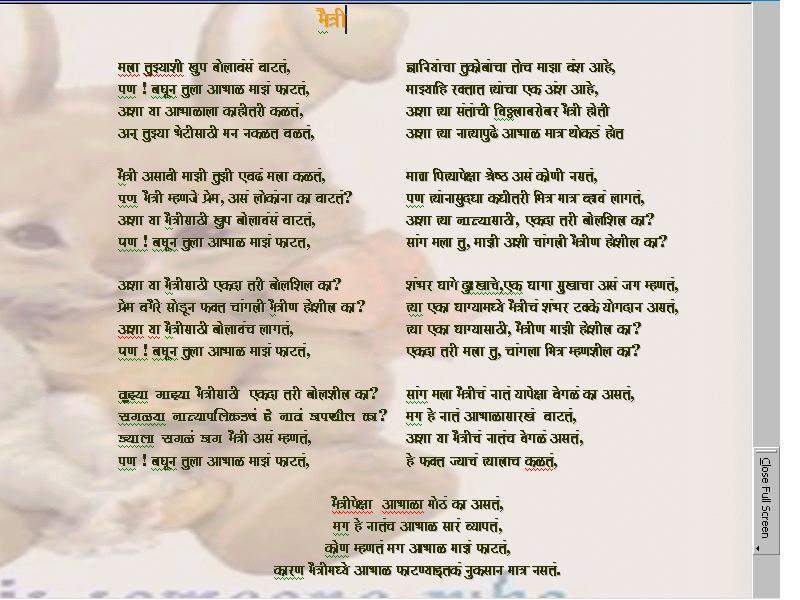 मैत्री
मला तुझ्याशी खुप बोलावंसं वाटतं,
पण ! बघून तुला आभाळ माझं फाटतं,
अशा या आभाळाला काहीतरी कळतं,
अन् तुझ्या भेटीसाठी मन नकळत वळतं,
मैत्री असावी माझी तुझी एवढं मला कळतं,
पण मैत्री म्हणजे प्रेम, असं लोकांना का वाटतं?
अशा या मैत्रीसाठी खुप बोलावंसं वाटतं,
पण ! बघून तुला आभाळ माझं फाटतं,
अशा या मैत्रीसाठी एकदा तरी बोलशिल का?
प्रेम वगैरे सोडून फक्त चांगली मैत्रीण होशील का?
अशा या मैत्रीसाठी बोलावंच लागतं,
पण ! बघून तुला आभाळ माझं फाटतं,
तुझ्या माझ्या मैत्रीसाठी एकदा तरी बोलशील का?
सगळ्या नात्यापलिकडचं हे नातं जपशील का?
ज्याला सगळं जग मैत्री असं म्हणतं,
पण ! बघून तुला आभाळ माझं फाटतं,
ज्ञानियांचा तुकोबांचा तोच माझा वंश आहे,
माझ्याहि रक्तात त्यांचा एक अंश आहे,
अशा त्या संतांची विठ्ठलाबरोबर मैत्री होती
अशा त्या नात्यापुढे आभाळ मात्र थोकडं होत
माता पित्यापेक्षा श्रेष्ठ असं कोणी नसतं,
पण त्यांनासुध्दा कधीतरी मित्र मात्र व्हावं लागतं,
अशा त्या नात्यासाठी, एकदा तरी बोलशिल का?
सांग मला तु, माझी अशी चांगली मैत्रीण होशील का?
शंभर धागे दुःखाचे,एक धागा सुखाचा असं जग म्हणतं,
त्या एका धाग्यामध्ये मैत्रीचं शंभर टक्के योगदान असतं,
त्या एका धाग्यासाठी, मैत्रीण माझी होशील का?
एकदा तरी मला तु, चांगला मित्र म्हणशील का?
सांग मला मैत्रीचं नातं यापेक्षा वेगळं का असतं,
मग हे नातं आभाळासारखं वाटतं,
अशा या मैत्रीचं नातंच वेगळं असतं,
हे फक्त ज्याचं त्यालाच कळतं,
मैत्रीपेक्षा आभाळा मोठं का असतं,
मग हे नातंच आभाळ सारं व्यापतं,
कोण म्हणतं मग आभाळ माझं फाटतं,
कारण मैत्रीमध्ये आभाळ फाटण्याइतकं नुकसान मात्र नसतं.
Close Full Screen